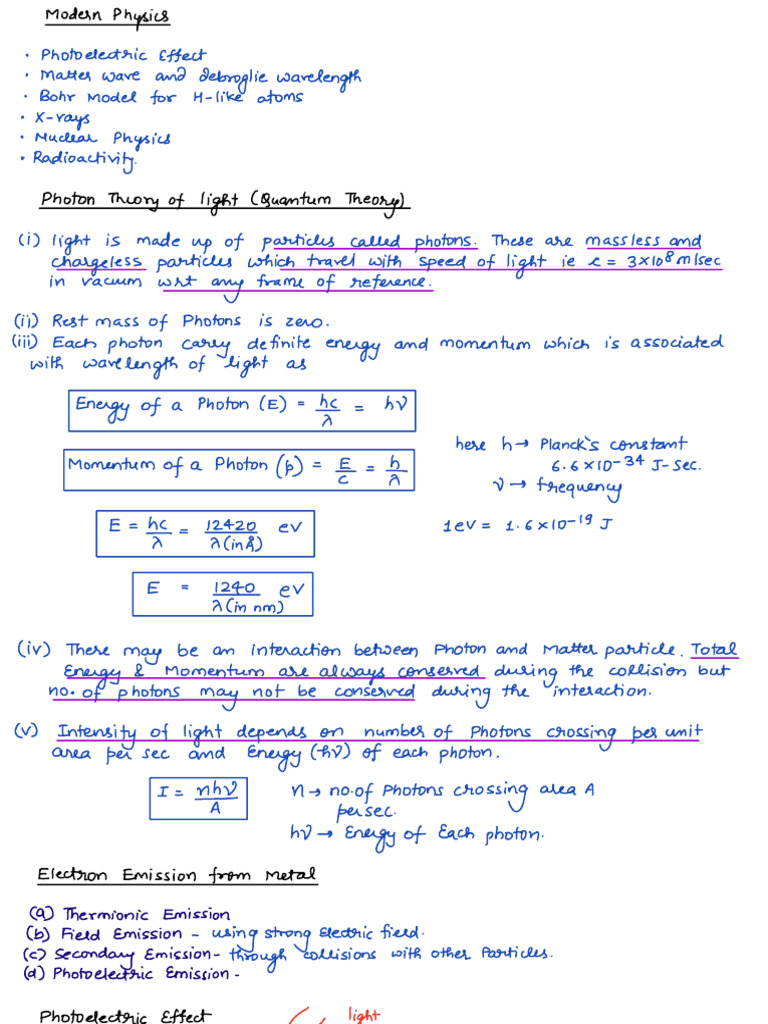 Modern Physics
• Photoelectric Effect
• Matter wave and debroglie wavelength
• Bohr Model for H-like atoms
• X-rays
• Nuclear Physics
• Radioactivity.
Photon Theory of light (Quantum Theory)
(i) light is made up of particles called photons. These are massless and
chargeless particles which travel with speed of light ie c = 3×10⁸ m/sec
in vacuum wrt any frame of reference.
(ii) Rest mass of Photons is zero.
(iii) Each photon carry definite energy and momentum which is associated
with wavelength of light as
Energy of a Photon (E) = hc/λ = hν
here h → Planck's constant
6.6×10⁻³⁴ J-sec.
ν → frequency
Momentum of a Photon (p) = E/c = h/λ
E = hc/λ = 12420/λ(in Å) eV
1eV = 1.6×10⁻¹⁹ J
E = 1240/λ(in nm) eV
(iv) There may be an interaction between Photon and Matter particle. Total
Energy & Momentum are always conserved during the collision but
no. of photons may not be conserved during the interaction.
(v) Intensity of light depends on number of Photons crossing per unit
area per sec and Energy (hν) of each photon.
I = nhν/A
n → no. of Photons crossing area A
per sec.
hν → Energy of Each photon.
Electron Emission from Metal
(a) Thermionic Emission
(b) Field Emission - using strong Electric field.
(c) Secondary Emission - through collisions with other Particles.
(d) Photoelectric Emission -
Photoelectric Effect
light